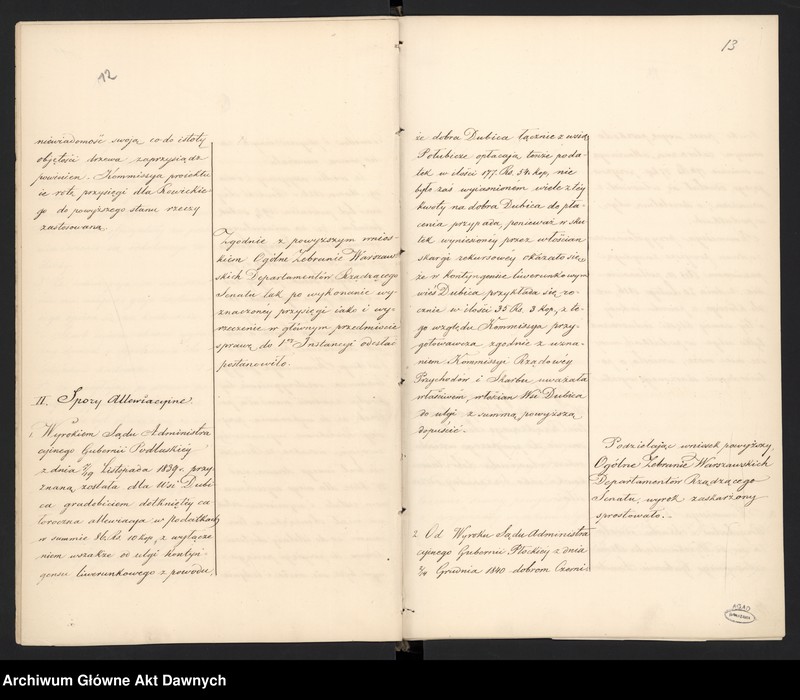 12
niewiadomość swoją co do istoty
objętości drzewa zaprzysiądz
powinien. Kommissya projektu
ie rotę przysięgi dla
go do powyższego stanu rzeczy
zastosowaną
Zgodnie z powyższym wnios-
kiem Ogólne Zebranie Warszaw-
skich Departamentów Rządzącego
Senatu tak po wykonanie wy-
znaczoney przysięgi iako i wy-
rzeczenie w głównym przedmiocie
sprawę do 1ey Instancyi odesłać
postanowiło.
II. Spory Allewiacyjne.
1. Wyrokiem Sądu Administra
cyjnego Gubernii Podlaskiey
z dnia 7/19 Listopada 1839 r. przy
znaną została dla Wsi Dubi
ca gradobiciem dotkniętey ca
łoroczna allewiacya w podatkach
w summie Rs. 10 kop. z wyłącze
niem wszakże od ulgi kontyn-
gensu liwerunkowego z powodu,
13
że dobra Dubica łącznie z wsią
Połubicze opłacają tenże poda-
tek w ilości 177. Rs. 54. kop. nie
było zaś wyjaśnionem wiele z tey
kwoty na dobra Dubica do pła-
cenia przypada, ponieważ w sku
tek wyniesioney przez włościan
skargi rekursowey okazało się,
że w kontyngensie liwerunkowym
wieś Dubica przykłada się ro-
cznie w ilości 35 Rs. 3 kop, z te-
go względu Kommissya przy-
gotowawcza zgodnie z uzna-
niem Kommissyi Rządowéy
Przychodów i Skarbu uważała
właściwem, włościan Wsi Dubica
do ulgi z summą powyższą
dopuścić.
Podzielając wniosek powyższy,
Ogólne Zebranie Warszawskich
Departamentów Rządzącego
Senatu, wyrok zaskarżony
sprostowało.
2. Od Wyroku Sądu Administra
cyjnego Gubernii Płockiey z dnia
Grudnia 1840 dobrom Czerni-
AGAD
Archiwum Główne Akt Dawnych